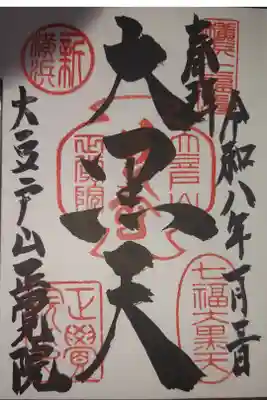 奉拝
令和八年一月三日
七福大黒天
大黒天
新横浜
大豆戸山正覚院
正覺院